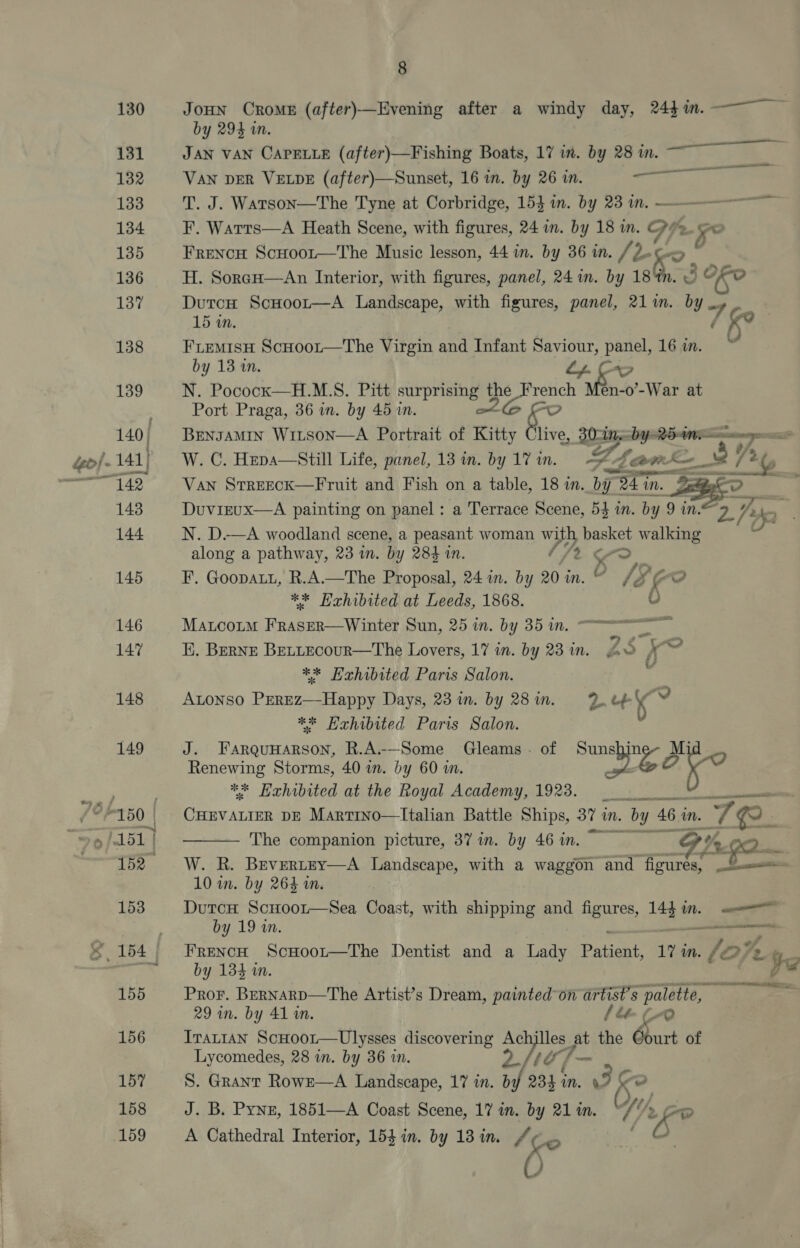 8
130 JOHN CROME (after)—Evening after a windy day, 24½ in.
by 29½ in.
131 JAN VAN CAPELLE (after)—Fishing Boats, 17 in. by 28 in.
132 VAN DER VELDE (after)—Sunset, 16 in. by 26 in.
133 T. J. WATSON—The Tyne at Corbridge, 15½ in. by 23 in.
134 F. WATTS—A Heath Scene, with figures, 24 in. by 18 in.
135 FRENCH SCHOOL—The Music lesson, 44 in. by 36 in.
136 H. SORGH—An Interior, with figures, panel, 24 in. by 18 in.
137 DUTCH SCHOOL—A Landscape, with figures, panel, 21 in. by
15 in.
138 FLEMISH SCHOOL—The Virgin and Infant Saviour, panel, 16 in.
by 13 in.
139 N. POCOCK—H.M.S. Pitt surprising the French Men-o'-War at
Port Praga, 36 in. by 45 in.
140 BENJAMIN WILSON—A Portrait of Kitty Clive, 30 in. by 25 in.
141 W. C. HEDA—Still Life, panel, 13 in. by 17 in.
142 VAN STREECK—Fruit and Fish on a table, 18 in. by 24 in.
143 DUVIEUX—A painting on panel : a Terrace Scene, 5½ in. by 9 in.
144 N. D.—A woodland scene, a peasant woman with basket walking
along a pathway, 23 in. by 28½ in.
145 F. GOODALL, R.A.—The Proposal, 24 in. by 20 in.
** Exhibited at Leeds, 1868.
146 MALCOLM FRASER—Winter Sun, 25 in. by 35 in.
147 E. BERNE BELLECOUR—The Lovers, 17 in. by 23 in.
** Exhibited Paris Salon.
148 ALONSO PEREZ—Happy Days, 23 in. by 28 in.
** Exhibited Paris Salon.
149 J. FARQUHARSON, R.A.—Some Gleams of Sunshine Mid
Renewing Storms, 40 in. by 60 in.
** Exhibited at the Royal Academy, 1923.
150 CHEVALIER DE MARTINO—Italian Battle Ships, 37 in. by 46 in.
151 ——— The companion picture, 37 in. by 46 in.
152 W. R. BEVERLEY—A Landscape, with a waggon and figures,
10 in. by 26½ in.
153 DUTCH SCHOOL—Sea Coast, with shipping and figures, 14½ in.
by 19 in.
154 FRENCH SCHOOL—The Dentist and a Lady Patient, 17 in.
by 13½ in.
155 PROF. BERNARD—The Artist's Dream, painted on artist's palette,
29 in. by 41 in.
156 ITALIAN SCHOOL—Ulysses discovering Achilles at the Court of
Lycomedes, 28 in. by 36 in.
157 S. GRANT ROWE—A Landscape, 17 in. by 23½ in.
158 J. B. PYNE, 1851—A Coast Scene, 17 in. by 21 in.
159 A Cathedral Interior, 15½ in. by 13 in.